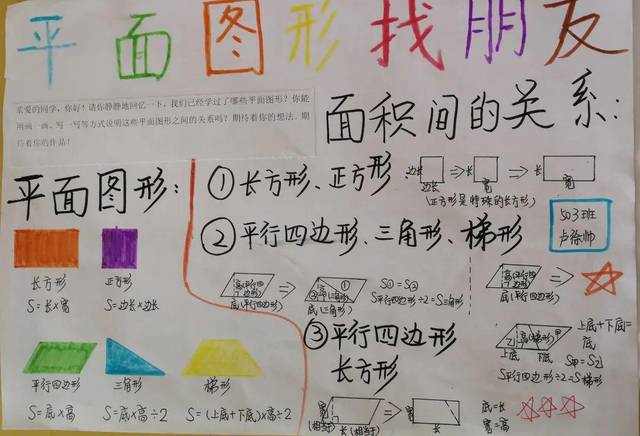 平面图形找朋友
亲爱的同学，你好！请你静静地回忆一下，我们已经学过了哪些平面图形？你能
用画一画、写一写等方式说明这些平面图形之间的关系吗？期待着你的想法，期
待着你的作品！
面积间的关系：
平面图形：
长方形
S=长×宽
正方形
S=边长×边长
平行四边形
S=底×高
三角形
S=底×高÷2
梯形
S=(上底+下底)×高÷2
①长方形、正方形
边长
边长
宽
长
宽
(正方形是特殊的长方形)
503班
卢徐帅
②平行四边形、三角形、梯形
底(平行四边形)
①
底(三角形)
S①=S②
S平行四边形÷2=S三角形
底(平行四边形)
上底 下底
上底+下底=
底
S平行四边形÷2=S梯形
③平行四边形
长方形
宽
长
宽
长
底=长
宽=高